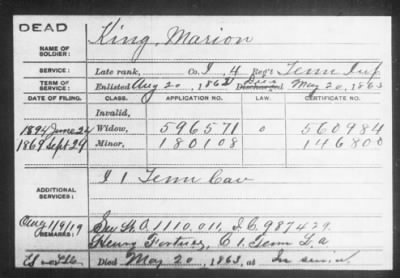 DEAD
NAME OF SOLDIER: King, Marion
SERVICE: Late rank, Co. I, 4 Reg't Tenn Inf
TERM OF SERVICE: Enlisted Aug 20, 1862 Died Discharged May 20, 1863
DATE OF FILING. CLASS. APPLICATION NO. LAW. CERTIFICATE NO.
Invalid,
1894 June 24 Widow, 596571 o 560984
1869 Sept 29 Minor, 180108 146800
ADDITIONAL SERVICES: I 1 Tenn Cav
Aug 1/9/19 See W.O. 1110,011, I.C. 987429.
REMARKS: Henry C 1. Tenn L.a
Died May 20, 1863, at